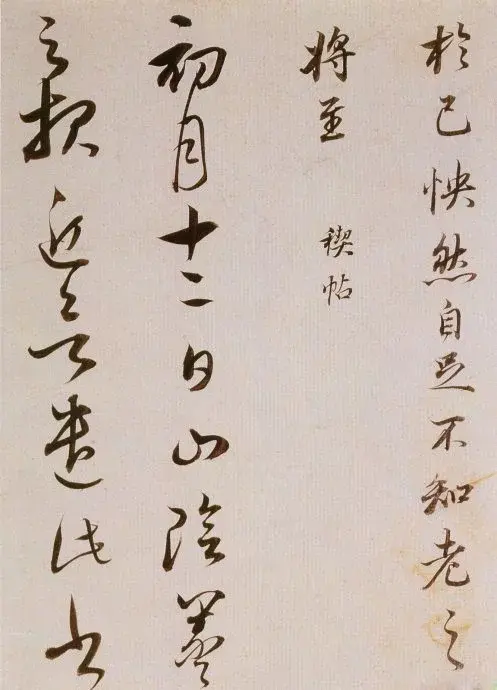 於己怏然自足不知老之
將至 稧帖
初月十二日山陰羲
之報近欲遣此書